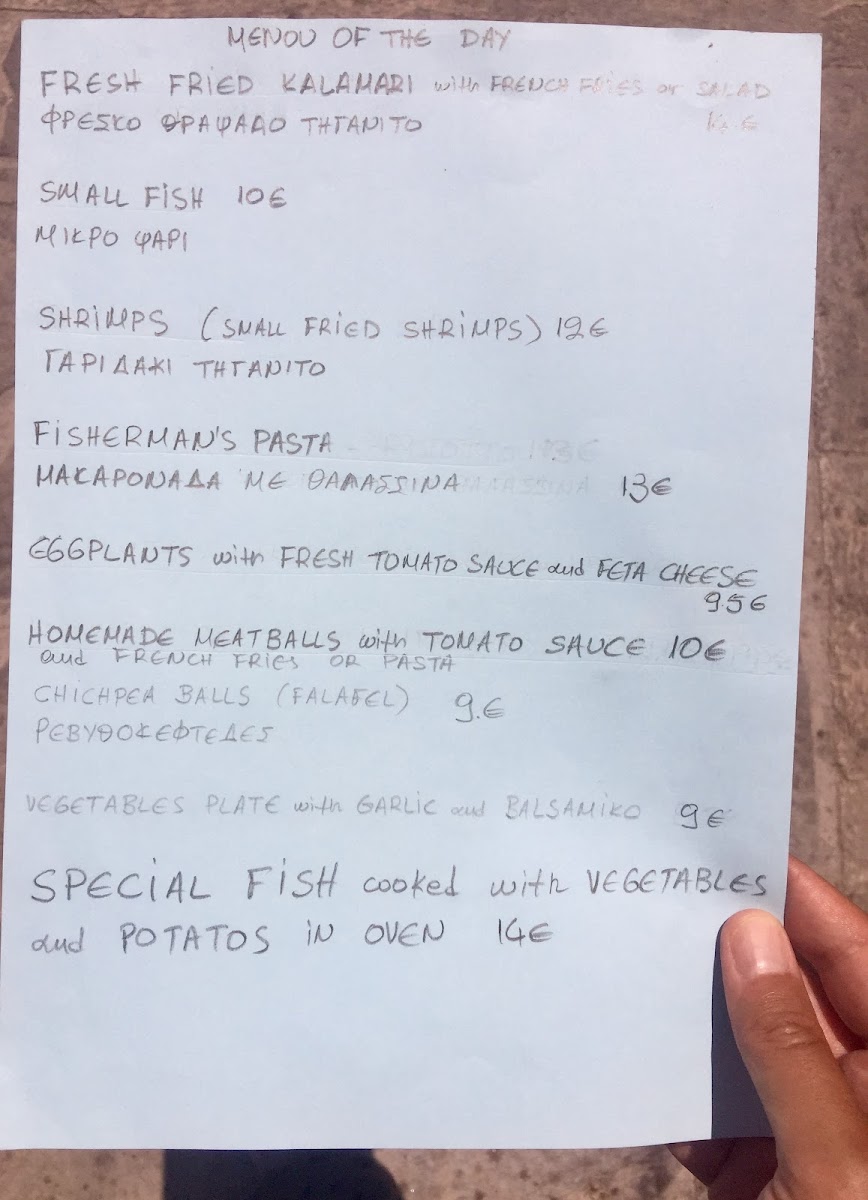 MENOU OF THE DAY
FRESH FRIED KALAMARI with FRENCH FRIES or SALAD
ΦΡΕΣΚΟ ΘΡΑΨΑΛΟ ΤΗΓΑΝΙΤΟ
SMALL FISH 10€
ΜΙΚΡΟ ΨΑΡΙ
SHRIMPS (SMALL FRIED SHRIMPS) 12€
ΓΑΡΙΔΑΚΙ ΤΗΓΑΝΙΤΟ
FISHERMAN'S PASTA
ΜΑΚΑΡΟΝΑΔΑ ΜΕ ΘΑΛΑΣΣΙΝΑ 13€
EGGPLANTS with FRESH TOMATO SAUCE and FETA CHEESE
9.5€
HOMEMADE MEATBALLS with TOMATO SAUCE 10€
and FRENCH FRIES OR PASTA
CHICHPEA BALLS (FALAFEL) 9.€
ΡΕΒΥΘΟΚΕΦΤΕΔΕΣ
VEGETABLES PLATE with GARLIC and BALSAMIKO 9€
SPECIAL FISH cooked with VEGETABLES
and POTATOS IN OVEN 14€